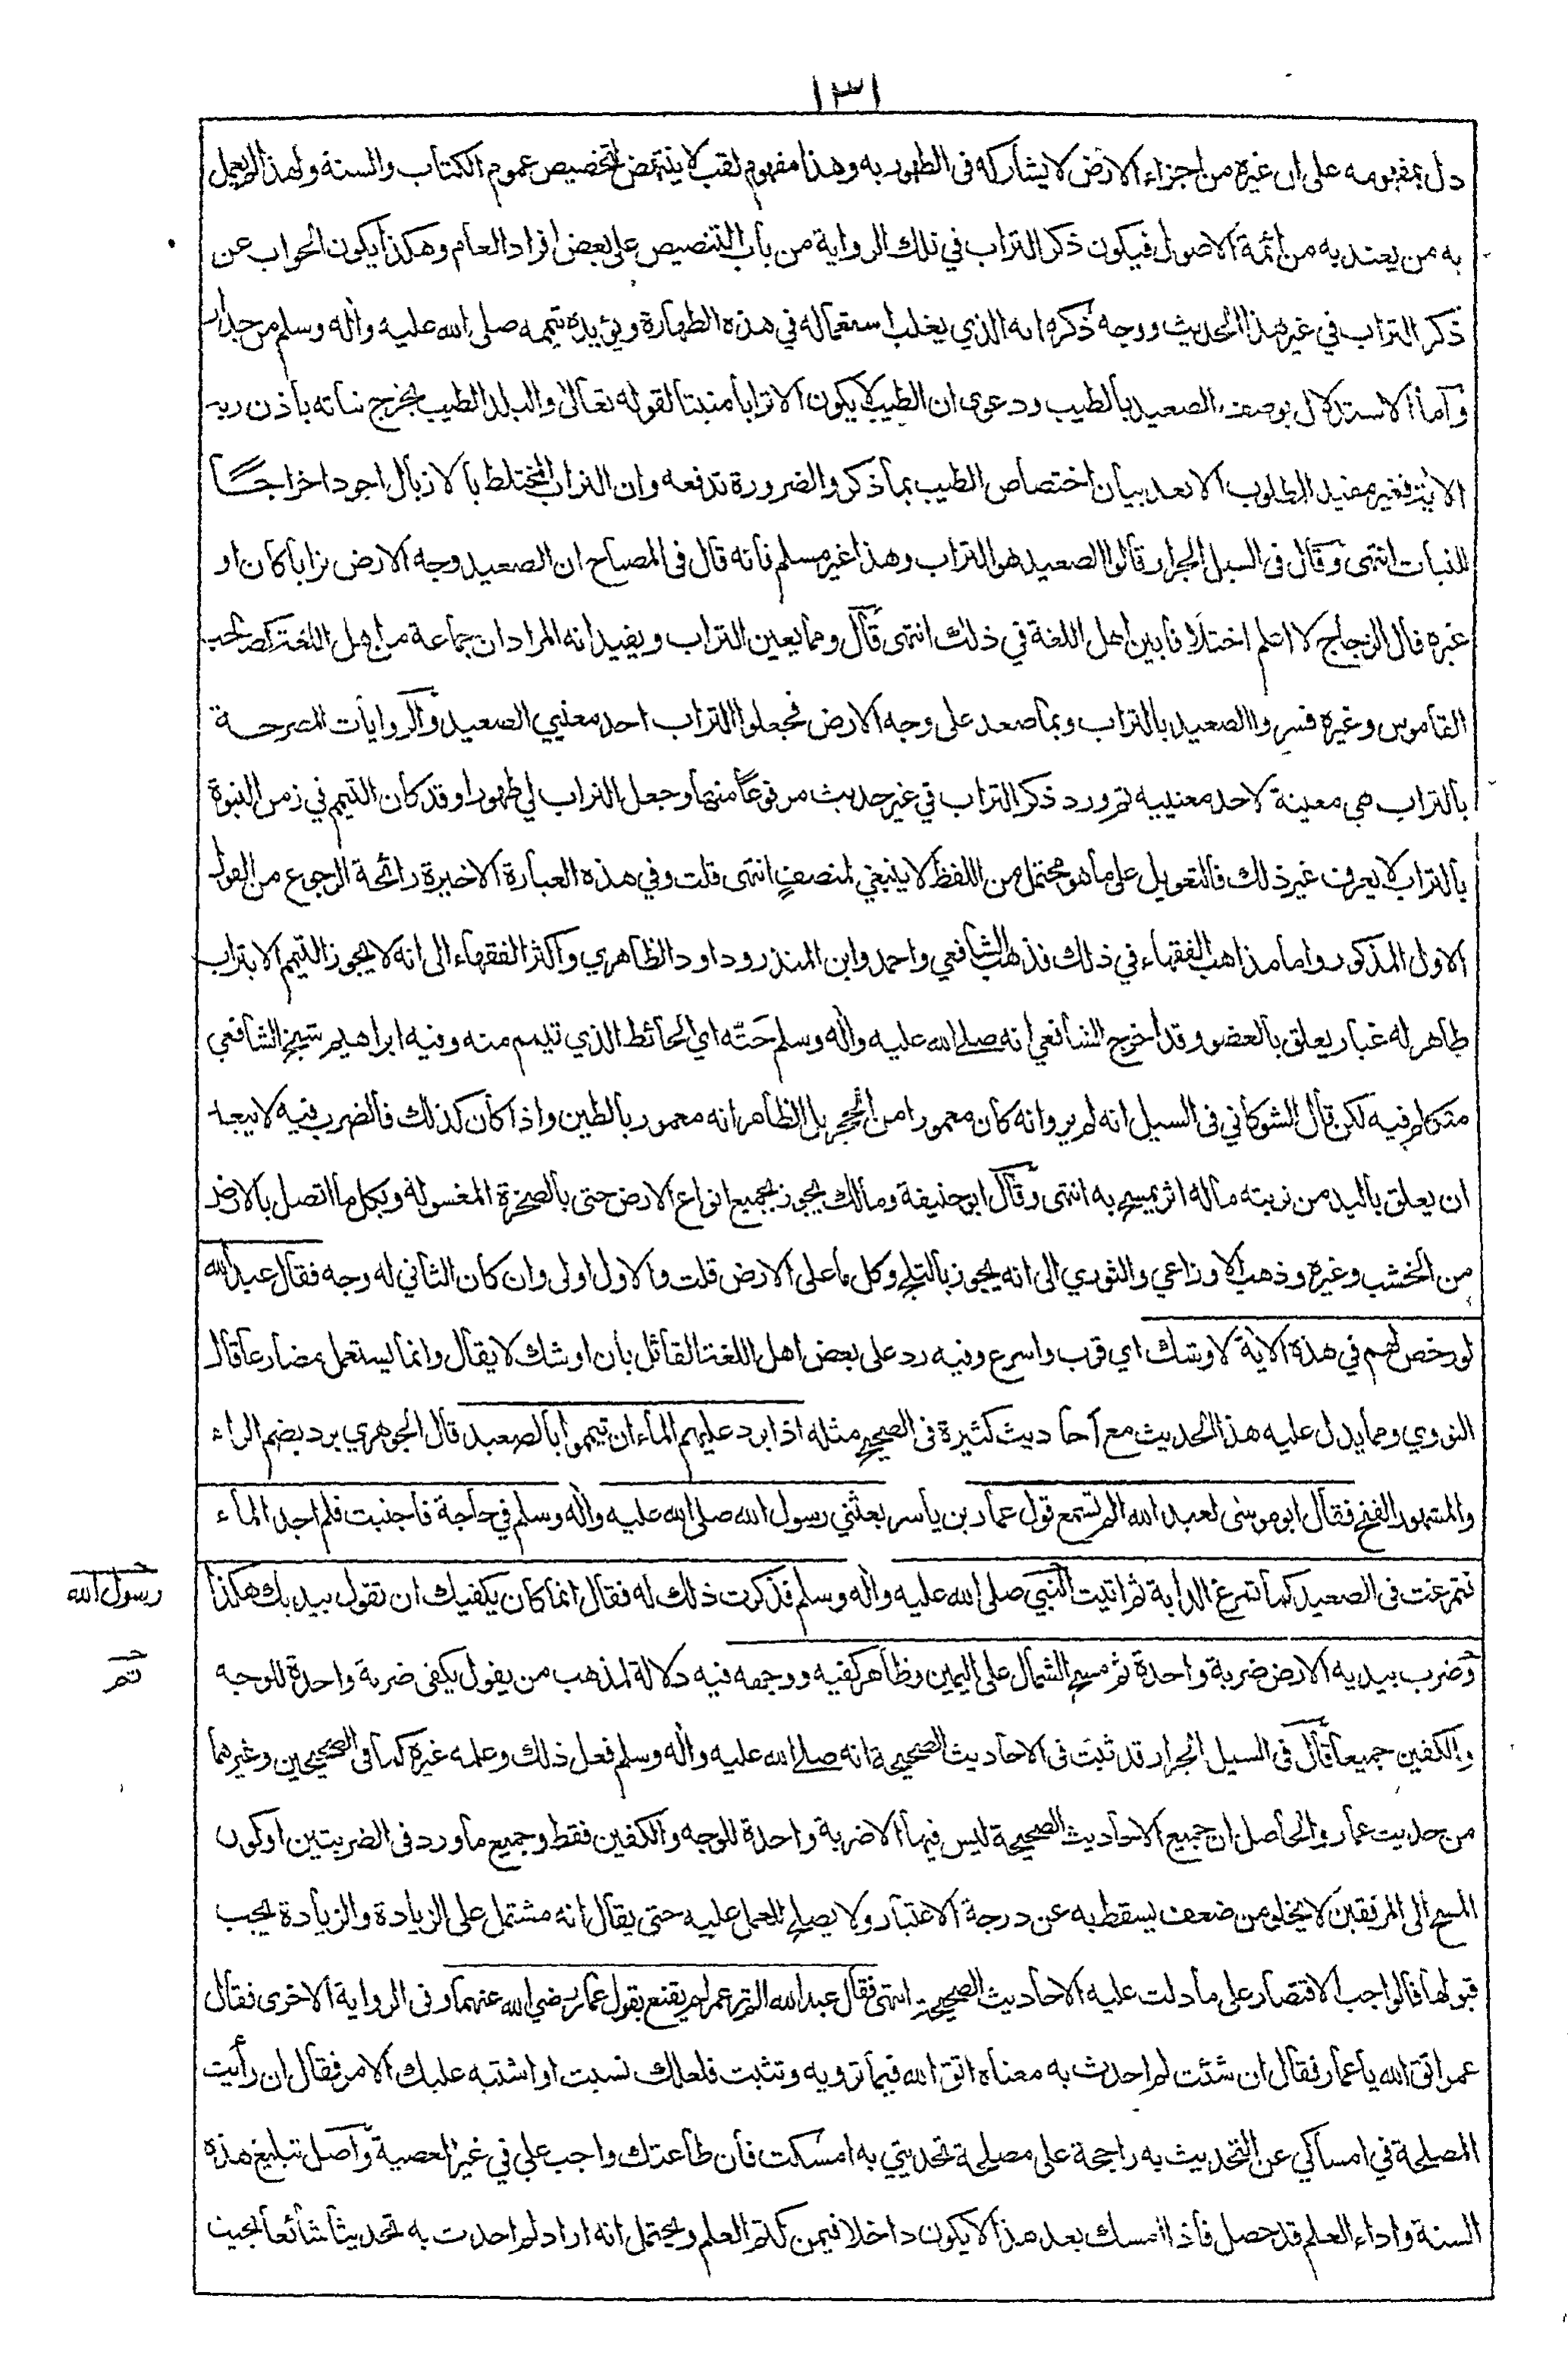 ١٣١
دل بمفهومه على ان غيره من اجزاء الارض لا يشاركه في الطهور به وهذا مفهوم لقب لا ينتهض لتخصيص عموم الكتاب والسنة ولهذا لم يعمل
به من يعتد به من ائمة الاصول فيكون ذكر التراب في تلك الرواية من باب التنصيص على بعض افراد العام وهكذا يكون الجواب عن
ذكر التراب في غير هذا الحديث ووجه ذكره انه الذي يغلب استعماله في هذه الطهارة ويؤيده تيممه صلى الله عليه واله وسلم من جدار
واما الاستدلال بوصف الصعيد بالطيب ودعوى ان الطيب لا يكون الا ترابا منبتا لقوله تعالى والبلد الطيب يخرج نباته باذن ربه
الاية فغير مفيد المطلوب الا بعد بيان اختصاص الطيب بما ذكر والضرورة تدفعه وان التراب المختلط بالازبال اجود اخراجًا
للنبات انتهى وقال في السيل الجرار قالوا الصعيد هو التراب وهذا غير مسلم فانه قال في المصباح ان الصعيد وجه الارض ترابا كان او
غيره قال الزجاج لا اعلم اختلافا بين اهل اللغة في ذلك انتهى قال ومما يعين التراب ويفيد انه المراد ان جماعة من اهل اللغة كصاحب
القاموس وغيره فسروا الصعيد بالتراب وبما صعد على وجه الارض فجعلوا التراب احد معنيي الصعيد والروايات المصرحة
بالتراب هي معينة لاحد معنييه ثم ورد ذكر التراب في غير حديث مرفوعًا منها وجعل التراب لي طهورا وقد كان التيمم في زمن النبوة
بالتراب لا يعرف غير ذلك فالتعويل على ما هو محتمل من اللفظ لا ينبغي لمنصفٍ انتهى قلت وفي هذه العبارة الاخيرة رائحة الرجوع من القول
الاول المذكور واما مذاهب الفقهاء في ذلك فذهب الشافعي واحمد وابن المنذر وداود الظاهري واكثر الفقهاء الى انه لا يجوز التيمم الا بتراب
طاهر له غبار يعلق بالعضو وقد اخرج الشافعي انه صلى الله عليه واله وسلم حَتّه اي الحائط الذي تيمم منه وفيه ابراهيم شيخ الشافعي
متكلم فيه لكن قال الشوكاني في السيل انه لم يرو انه كان معمورا من الحجر بل الظاهر انه معمور بالطين واذا كان كذلك فالضرب فيه لا يبعد
ان يعلق باليد من تربته ما له اثر يمسح به انتهى وقال ابو حنيفة ومالك يجوز بجميع انواع الارض حتى بالصخرة المغسولة وبكل ما اتصل بالارض
من الخشب وغيره وذهب الاوزاعي والثوري الى انه يجوز بالثلج وكل ما على الارض قلت والاول اولى وان كان الثاني له وجه فقال عبد الله
لو رخص لهم في هذه الاية لاوشك اي قرب واسرع وفيه رد على بعض اهل اللغة القائل بان اوشك لا يقال وانما يستعمل مضارعا قال
النووي ومما يدل عليه هذا الحديث مع أحاديث كثيرة في الصحيح مثله اذا برد عليهم الماء ان تيمموا بالصعيد قال الجوهري برد بضم الراء
والمشهور الفتح فقال ابو موسى لعبد الله الم تسمع قول عمار بن ياسر بعثني رسول الله صلى الله عليه واله وسلم في حاجة فاجنبت فلم اجد الماء
فتمرغت في الصعيد كما تمرغ الدابة ثم اتيت النبي صلى الله عليه واله وسلم فذكرت ذلك له فقال انما كان يكفيك ان تقول بيديك هكذا
رسول الله
وضرب بيديه الارض ضربة واحدة ثم مسح الشمال على اليمين وظاهر كفيه ووجهه فيه دلالة لمذهب من يقول يكفي ضربة واحدة للوجه
ثم
والكفين جميعا قال في السيل الجرار قد ثبت في الاحاديث الصحيحة انه صلى الله عليه واله وسلم فعل ذلك وعلمه غيره كما في الصحيحين وغيرهما
من حديث عمار والحاصل ان جميع الاحاديث الصحيحة ليس فيها الا ضربة واحدة للوجه والكفين فقط وجميع ما ورد في الضربتين او كون
المسح الى المرفقين لا يخلو من ضعف يسقط به عن درجة الاعتبار ولا يصلح للعمل عليه حتى يقال انه مشتمل على الزيادة والزيادة يجب
قبولها فالواجب الاقتصار على ما دلت عليه الاحاديث الصحيحة انتهى فقال عبد الله الم تر عمر لم يقنع بقول عمار رضي الله عنهما وفي الرواية الاخرى فقال
عمر اتق الله يا عمار فقال ان شئت لم احدث به معناه اتق الله فيما ترويه وتثبت فلعلك نسيت او اشتبه عليك الامر فقال ان رأيت
المصلحة في امساكي عن التحديث به راجحة على مصلحة تحديثي به امسكت فان طاعتك واجب علي في غير المعصية واصل تبليغ هذه
السنة واداء العلم قد حصل فاذا امسك بعد هذا لا يكون داخلا فيمن كتم العلم ويحتمل انه اراد لم احدث به تحديثا شائعا بحيث